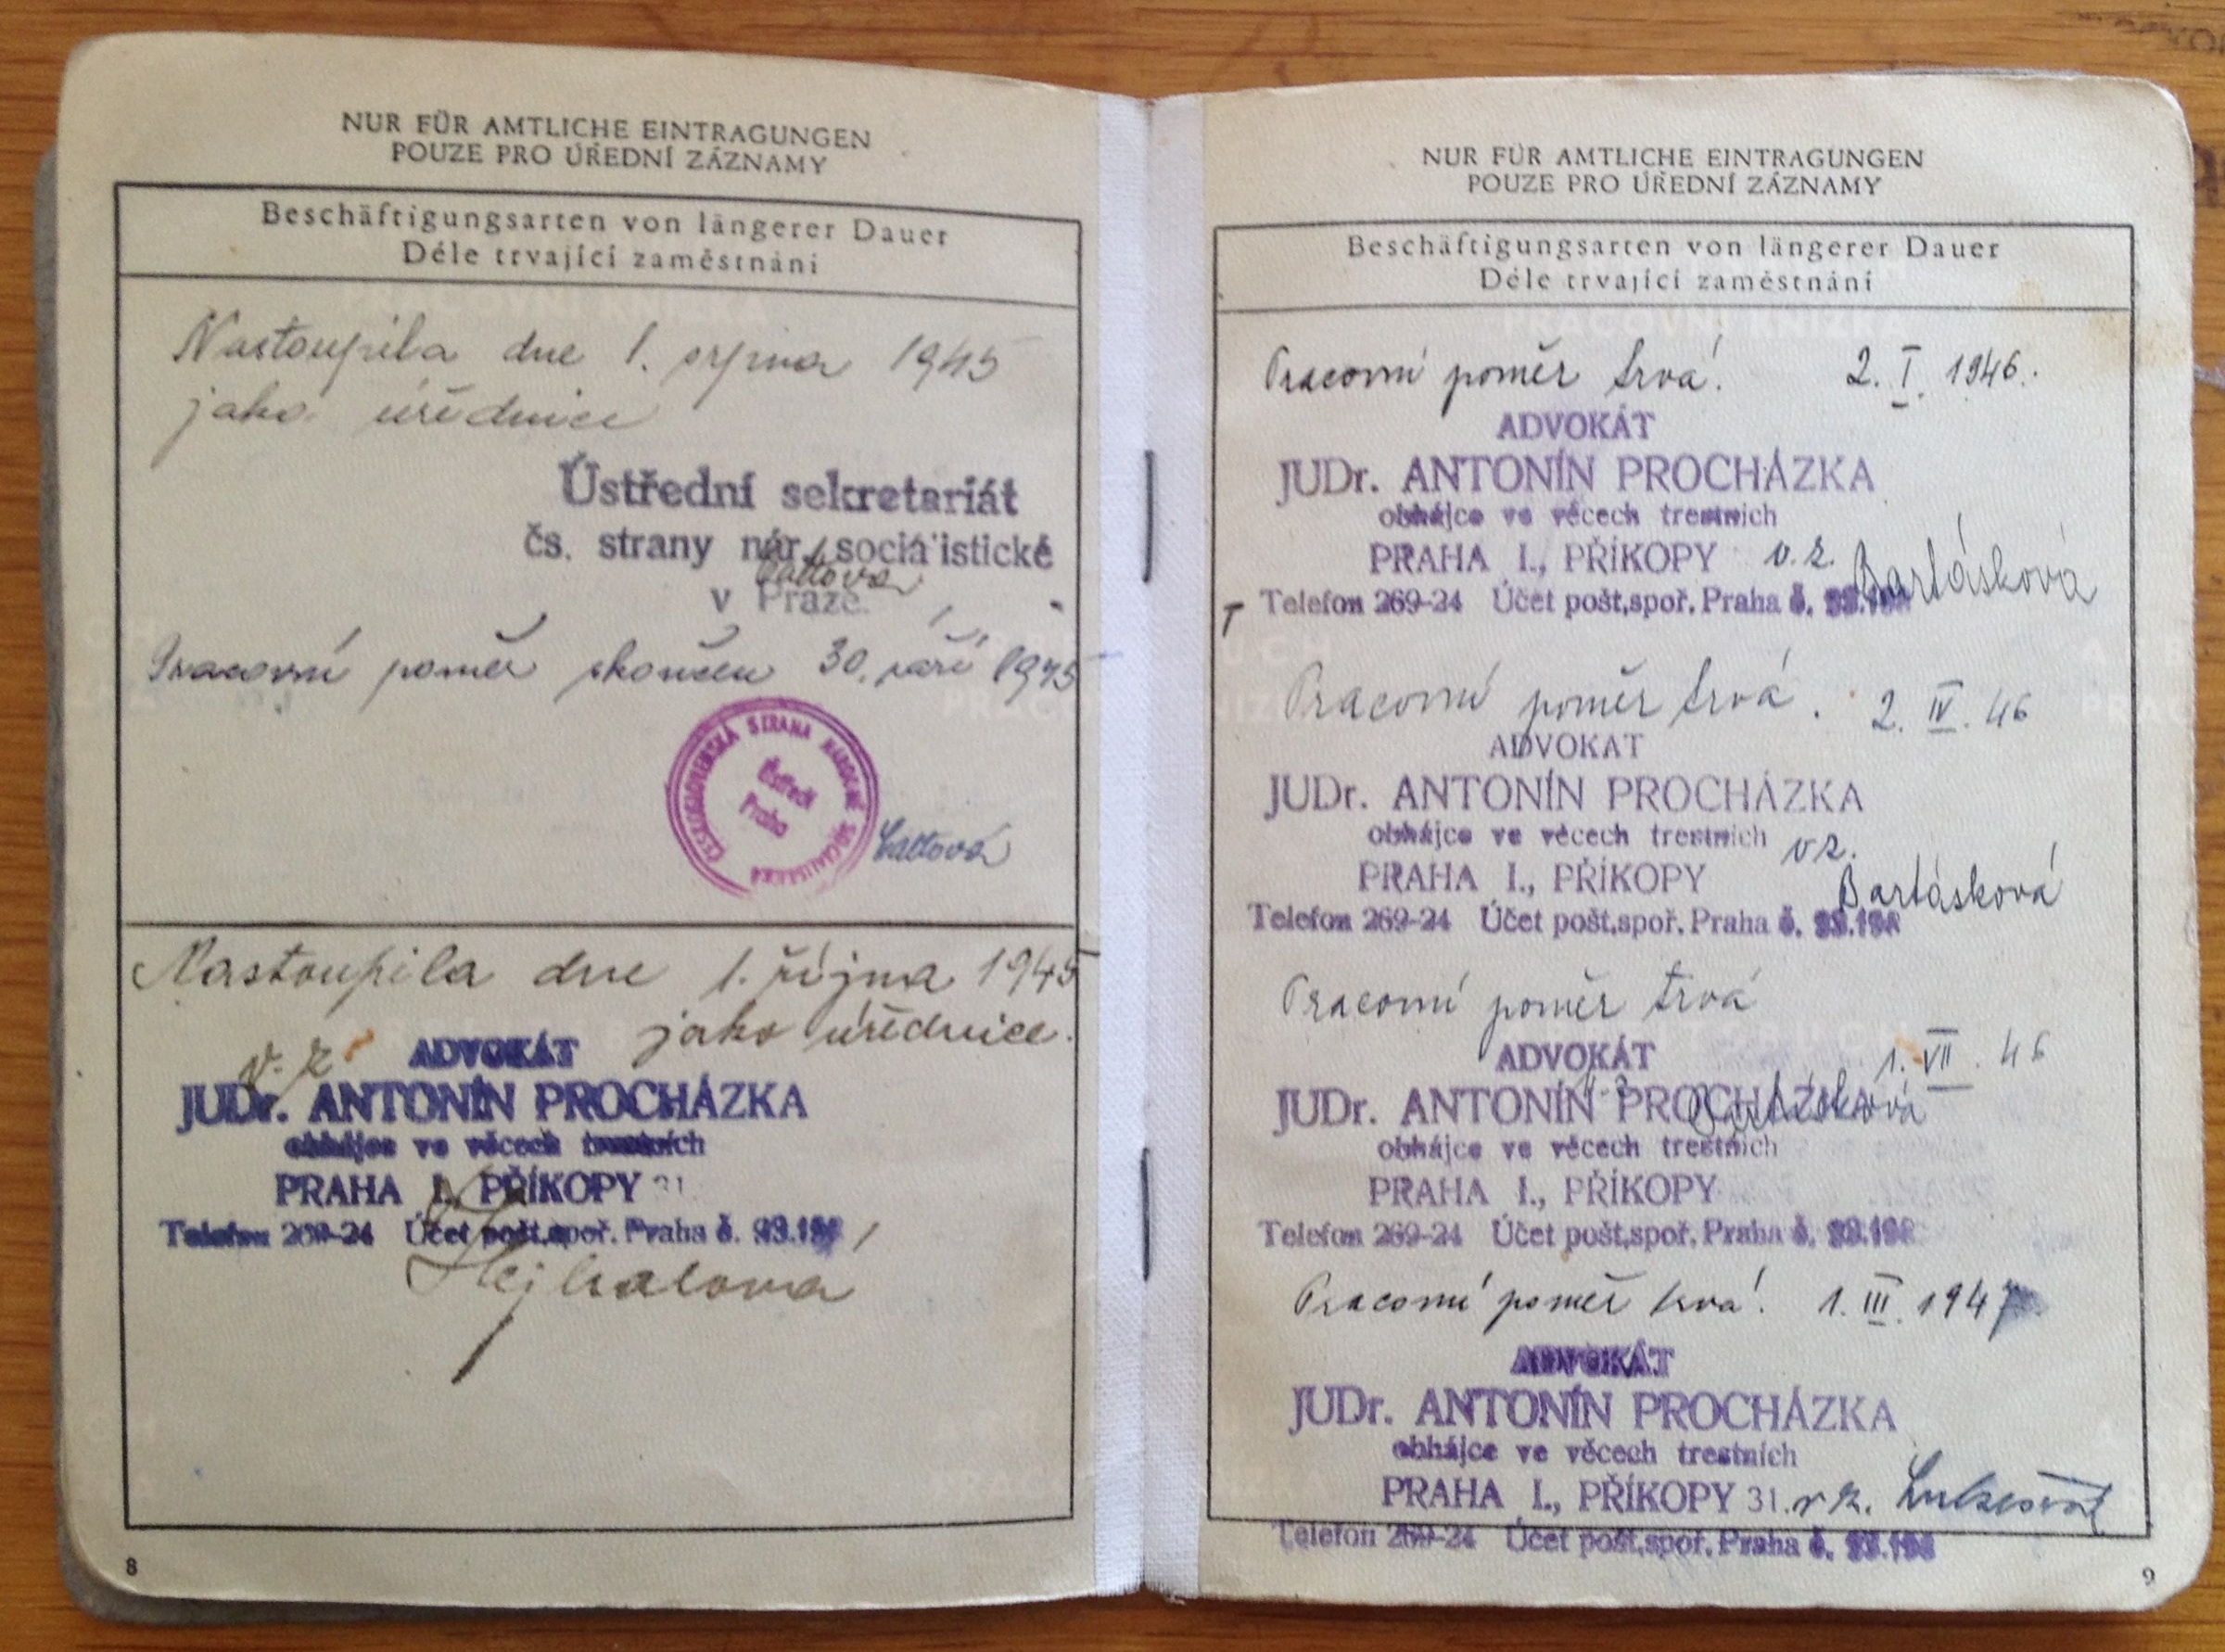 NUR FÜR AMTLICHE EINTRAGUNGEN
POUZE PRO ÚŘEDNÍ ZÁZNAMY
Beschäftigungsarten von längerer Dauer
Déle trvající zaměstnání
PRACOVNÍ KNÍŽKA
Nastoupila dne 1. srpna 1945
jako úřednice
Ústřední sekretariát
čs. strany nár. socialistické
v Praze.
Pracovní poměr skončen 30. září 1945
ČESKOSLOVENSKÁ STRANA NÁRODNĚ SOCIALISTICKÁ
Ústředí
Praha
Nastoupila dne 1. října 1945
jako úřednice.
v. z.
ADVOKÁT
JUDr. ANTONÍN PROCHÁZKA
obhájce ve věcech trestních
PRAHA I., PŘÍKOPY 31.
Telefon 269-24 Účet pošt.spoř. Praha č.
Hejhalová
8
NUR FÜR AMTLICHE EINTRAGUNGEN
POUZE PRO ÚŘEDNÍ ZÁZNAMY
Beschäftigungsarten von längerer Dauer
Déle trvající zaměstnání
PRACOVNÍ KNÍŽKA
Pracovní poměr trvá. 2. I. 1946.
ADVOKÁT
JUDr. ANTONÍN PROCHÁZKA
obhájce ve věcech trestních
PRAHA I., PŘÍKOPY v. z. Bartásková
Telefon 269-24 Účet pošt.spoř. Praha č.
Pracovní poměr trvá. 2. IV. 46
ADVOKÁT
JUDr. ANTONÍN PROCHÁZKA
obhájce ve věcech trestních vz.
PRAHA I., PŘÍKOPY Bartásková
Telefon 269-24 Účet pošt.spoř. Praha č.
Pracovní poměr trvá
ADVOKÁT 1. VII. 46
JUDr. ANTONÍN PROCHÁZKA Bartásková
obhájce ve věcech trestních
PRAHA I., PŘÍKOPY
Telefon 269-24 Účet pošt.spoř. Praha č.
Pracovní poměr trvá. 1. III. 1947
ADVOKÁT
JUDr. ANTONÍN PROCHÁZKA
obhájce ve věcech trestních
PRAHA I., PŘÍKOPY 31. v z.
Telefon 269-24 Účet pošt.spoř. Praha č.
9